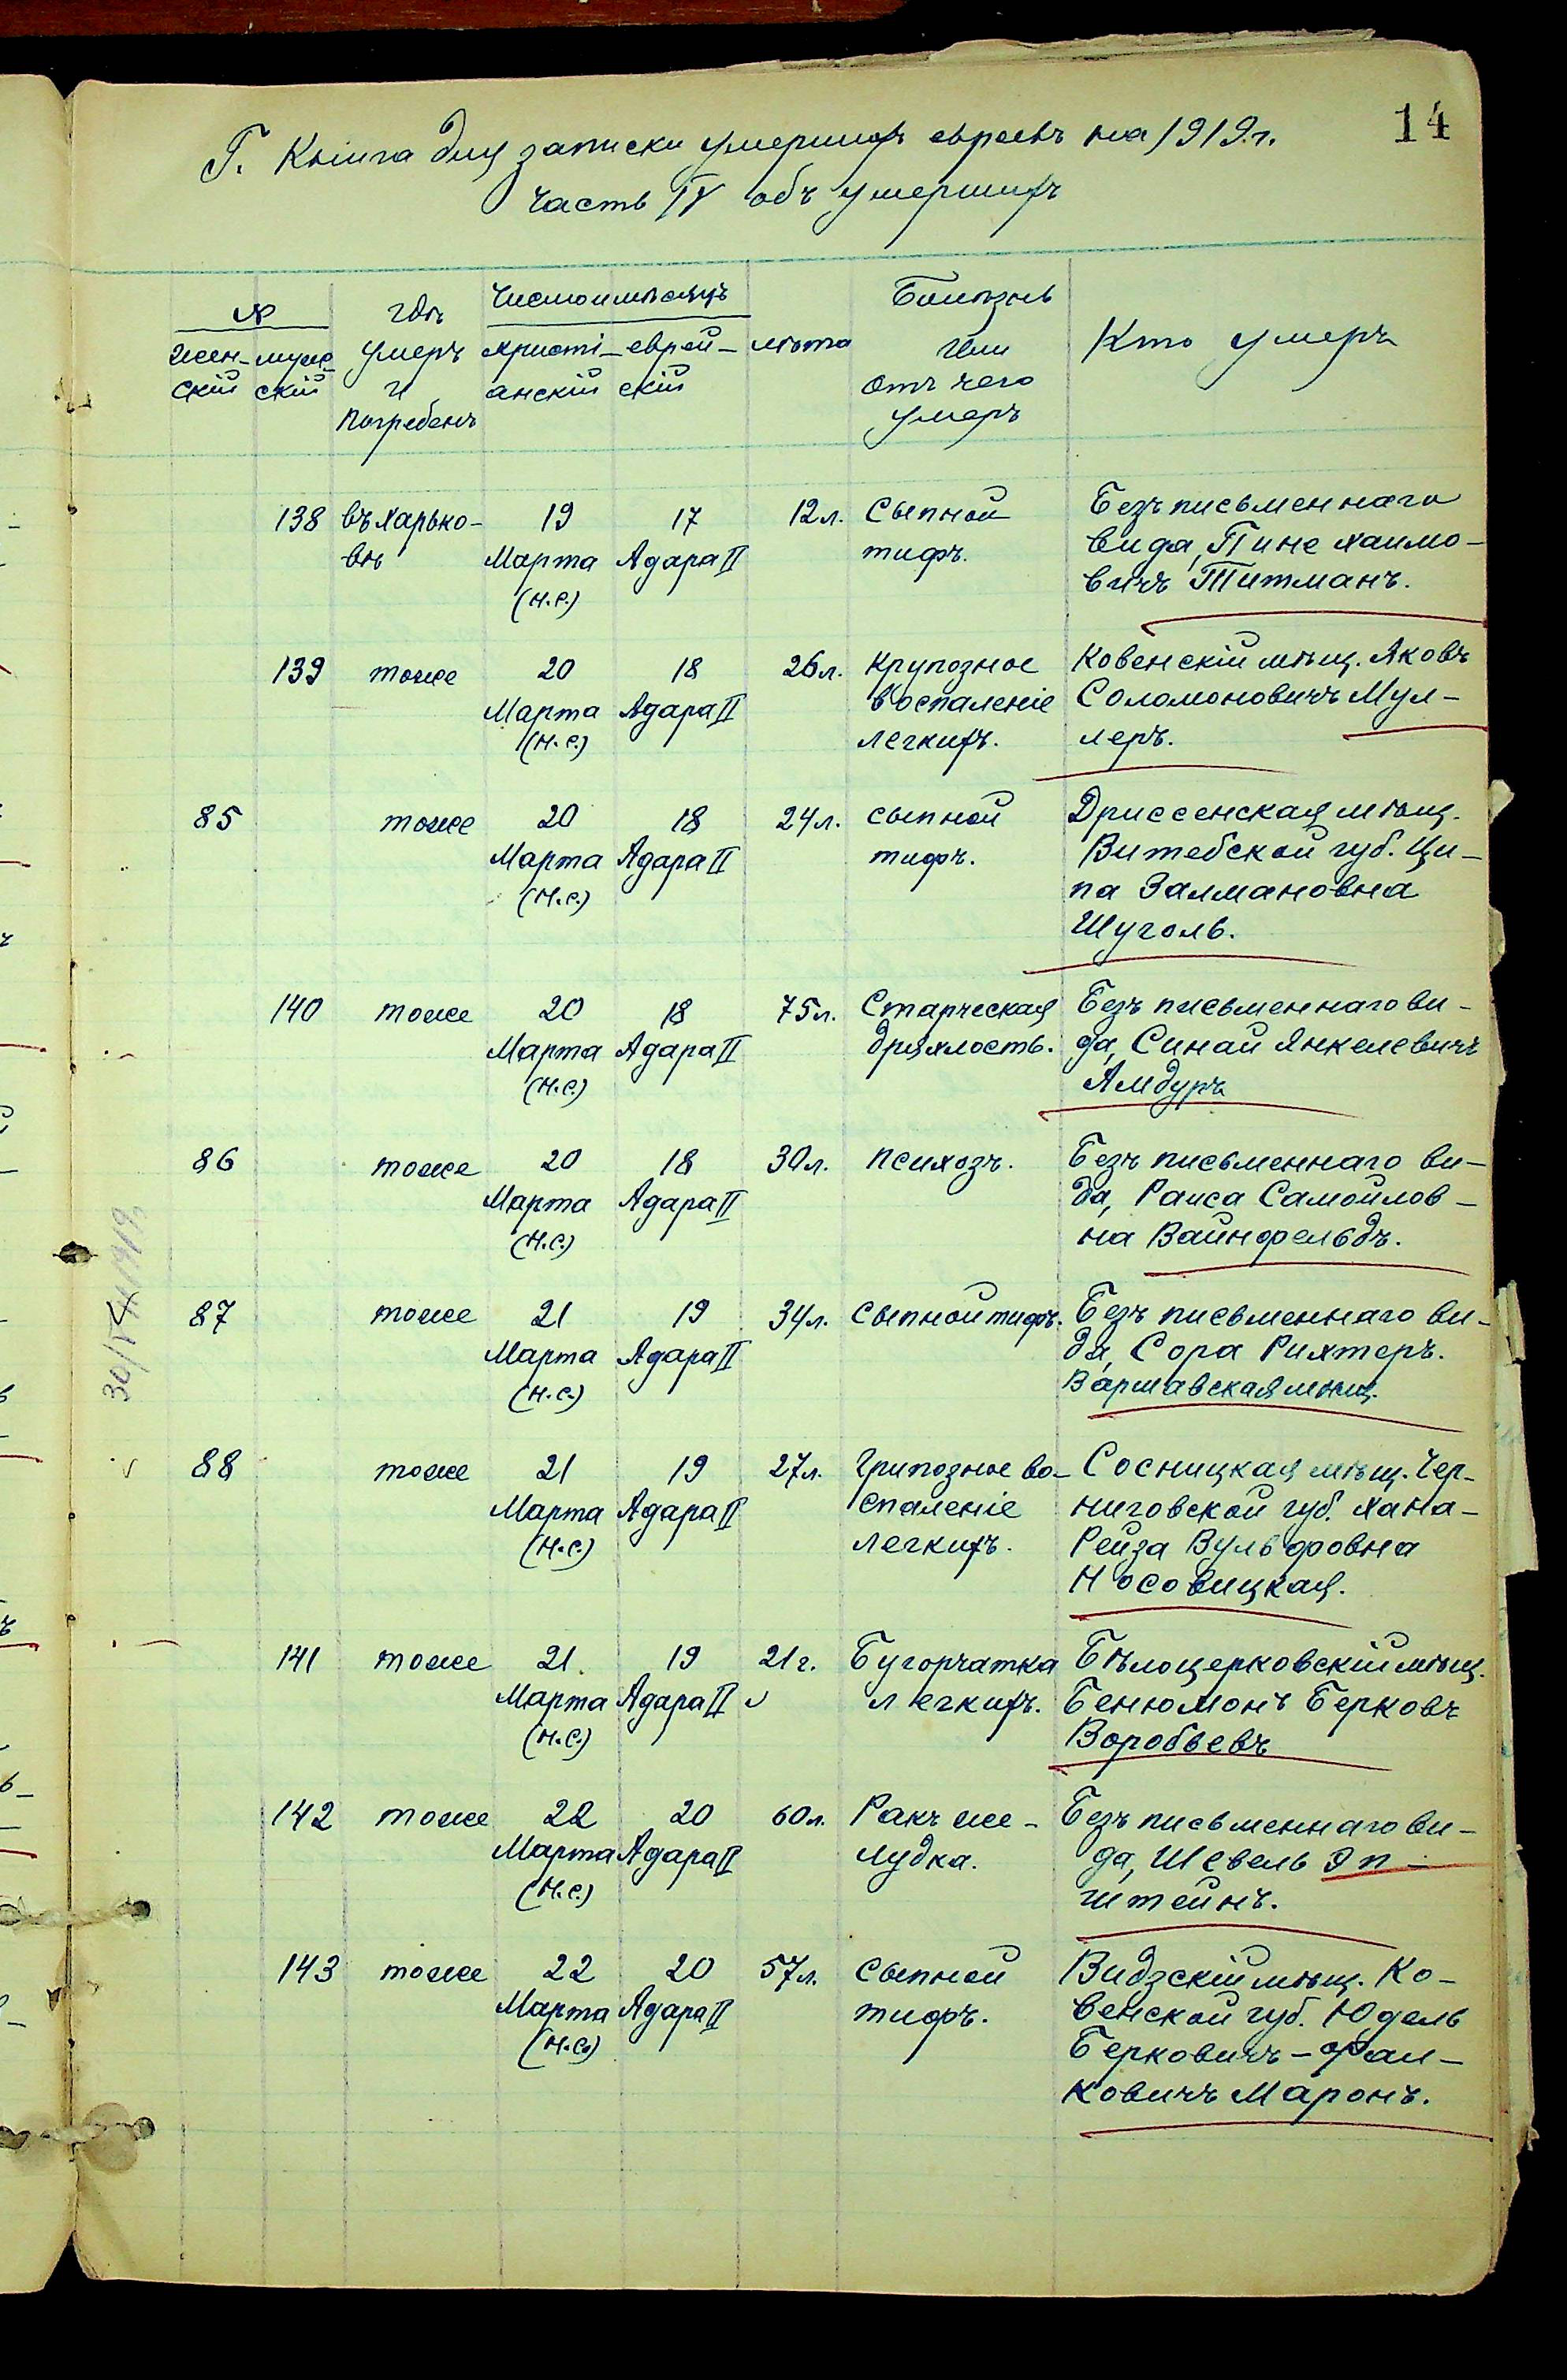 14
Г. Книга для записки умершихъ евреевъ на 1919 г.
Часть IV объ умершихъ
№ гдѣ Число и мѣсяцъ Болѣзнь
жен- муже- умеръ христі- еврей- лѣта или Кто умеръ
скій скій и анскій скій отъ чего
погребенъ умеръ
138 въ Харько- 19 17 12 л. Сыпной Безъ письменнаго
вѣ Марта Адара II тифъ. вида, Пине Хаимо-
(н.с.) вичъ Титманъ.
139 тоже 20 18 26 л. Крупозное Ковенскій мѣщ. Яковъ
Марта Адара II воспаленіе Соломоновичъ Мул-
(н.с.) легкихъ. леръ.
85 тоже 20 18 24 л. сыпной Дриссенская мѣщ.
Марта Адара II тифъ. Витебской губ. Ци-
(н.с.) па Залмановна
Шуголь.
140 тоже 20 18 75 л. Старческая Безъ письменнаго ви-
Марта Адара II дряхлость. да, Синай Янкелевичъ
(н.с.) Амдуръ
86 тоже 20 18 30 л. психозъ. Безъ письменнаго ви-
Марта Адара II да, Раиса Самойлов-
(н.с.) на Вайнфельдъ.
87 тоже 21 19 34 л. Сыпной тифъ. Безъ письменнаго ви-
Марта Адара II да, Сора Рихтеръ.
(н.с.) Варшавская мѣщ.
88 тоже 21 19 27 л. Грипозное во- Сосницкая мѣщ. Чер-
Марта Адара II спаленіе ниговской губ. Хана-
(н.с.) легкихъ. Рейза Вульфовна
Носовицкая.
141 тоже 21. 19 21 г. Бугорчатка Бѣлоцерковскій мѣщ.
Марта Адара II легкихъ. Бенюмонъ Берковъ
(н.с.) Воробьевъ
142 тоже 22 20 60 л. Ракъ же- Безъ письменнаго ви-
Марта Адара II лудка. да, Шевель Эп-
(н.с.) штейнъ.
143 тоже 22 20 57 л. сыпной Видзскій мѣщ. Ко-
Марта Адара II тифъ. венской губ. Юдель
(н.с.) Берковичъ-Фал-
ковичъ Маронъ.